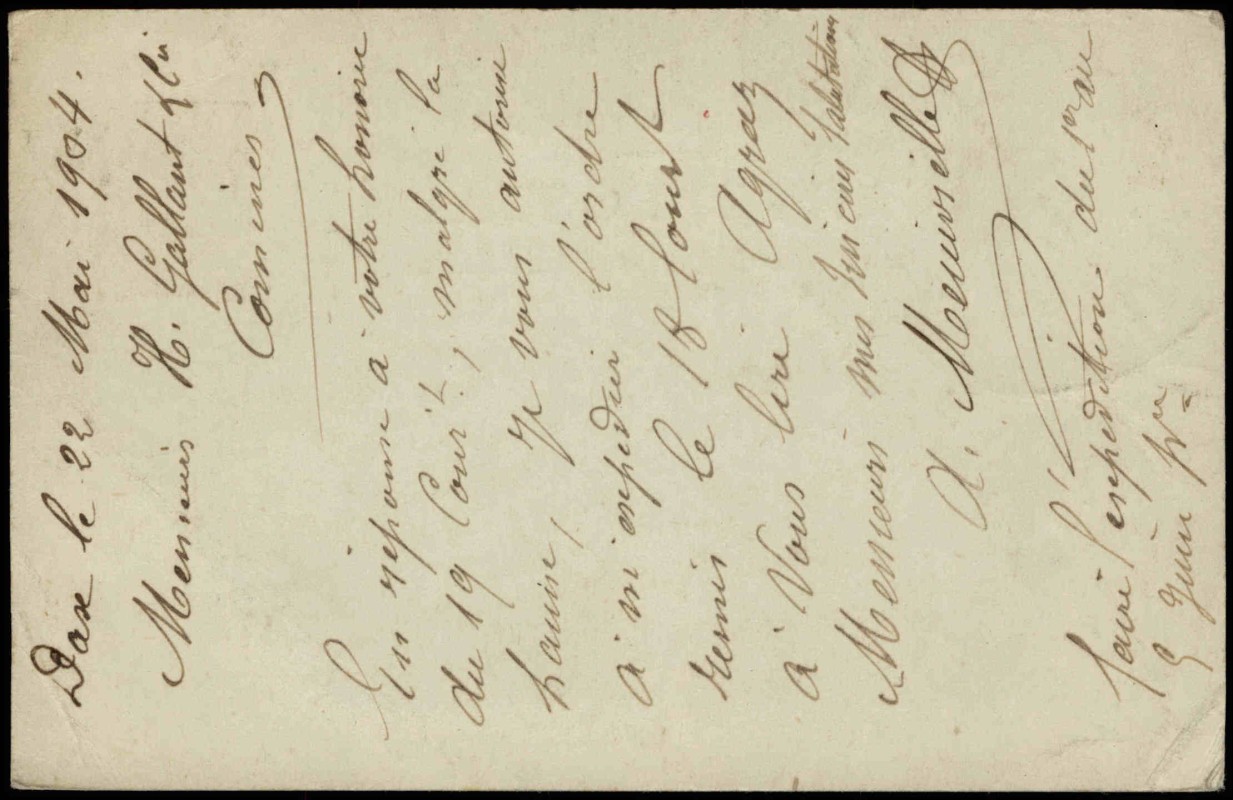 Dax le 22 Mai 1904.
Messieurs H. Gallant & Cie
Comines
En réponse à votre honorée
du 19 Court, malgré la
hausse, Je vous autorise
à m'expédier l'ordre
remis le 18 Court
à Vous lire Agréez
Messieurs mes sincères Salutations
A. Meurville
faire l'expédition du 1er au
5 Juin